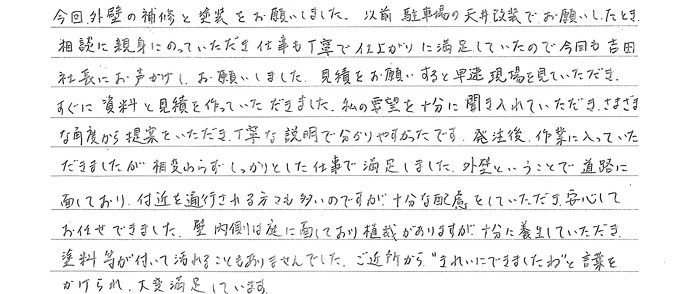 今回、外壁の補修と塗装をお願いしました。以前駐車場の天井改装でお願いしたとき、
相談に親身にのっていただき仕事も丁寧で仕上がりに満足していたので今回も吉田
社長にお声がけし、お願いしました。見積をお願いすると早速現場を見ていただき、
すぐに資料と見積を作っていただきました。私の要望を十分に聞き入れていただき、さまざま
な角度から提案をいただき、丁寧な説明で分かりやすかったです。発注後、作業に入っていた
だきましたが相変わらずしっかりとした仕事で満足しました。外壁ということで道路に
面しており、付近を通行される方々も多いのですが、十分な配慮をしていただき、安心して
お任せできました。壁内側は庭に面しており植栽がありますが、十分に養生していただき、
塗料等が付いて汚れることもありませんでした。ご近所から"きれいにできましたね"と言葉を
かけられ、大変満足しています。